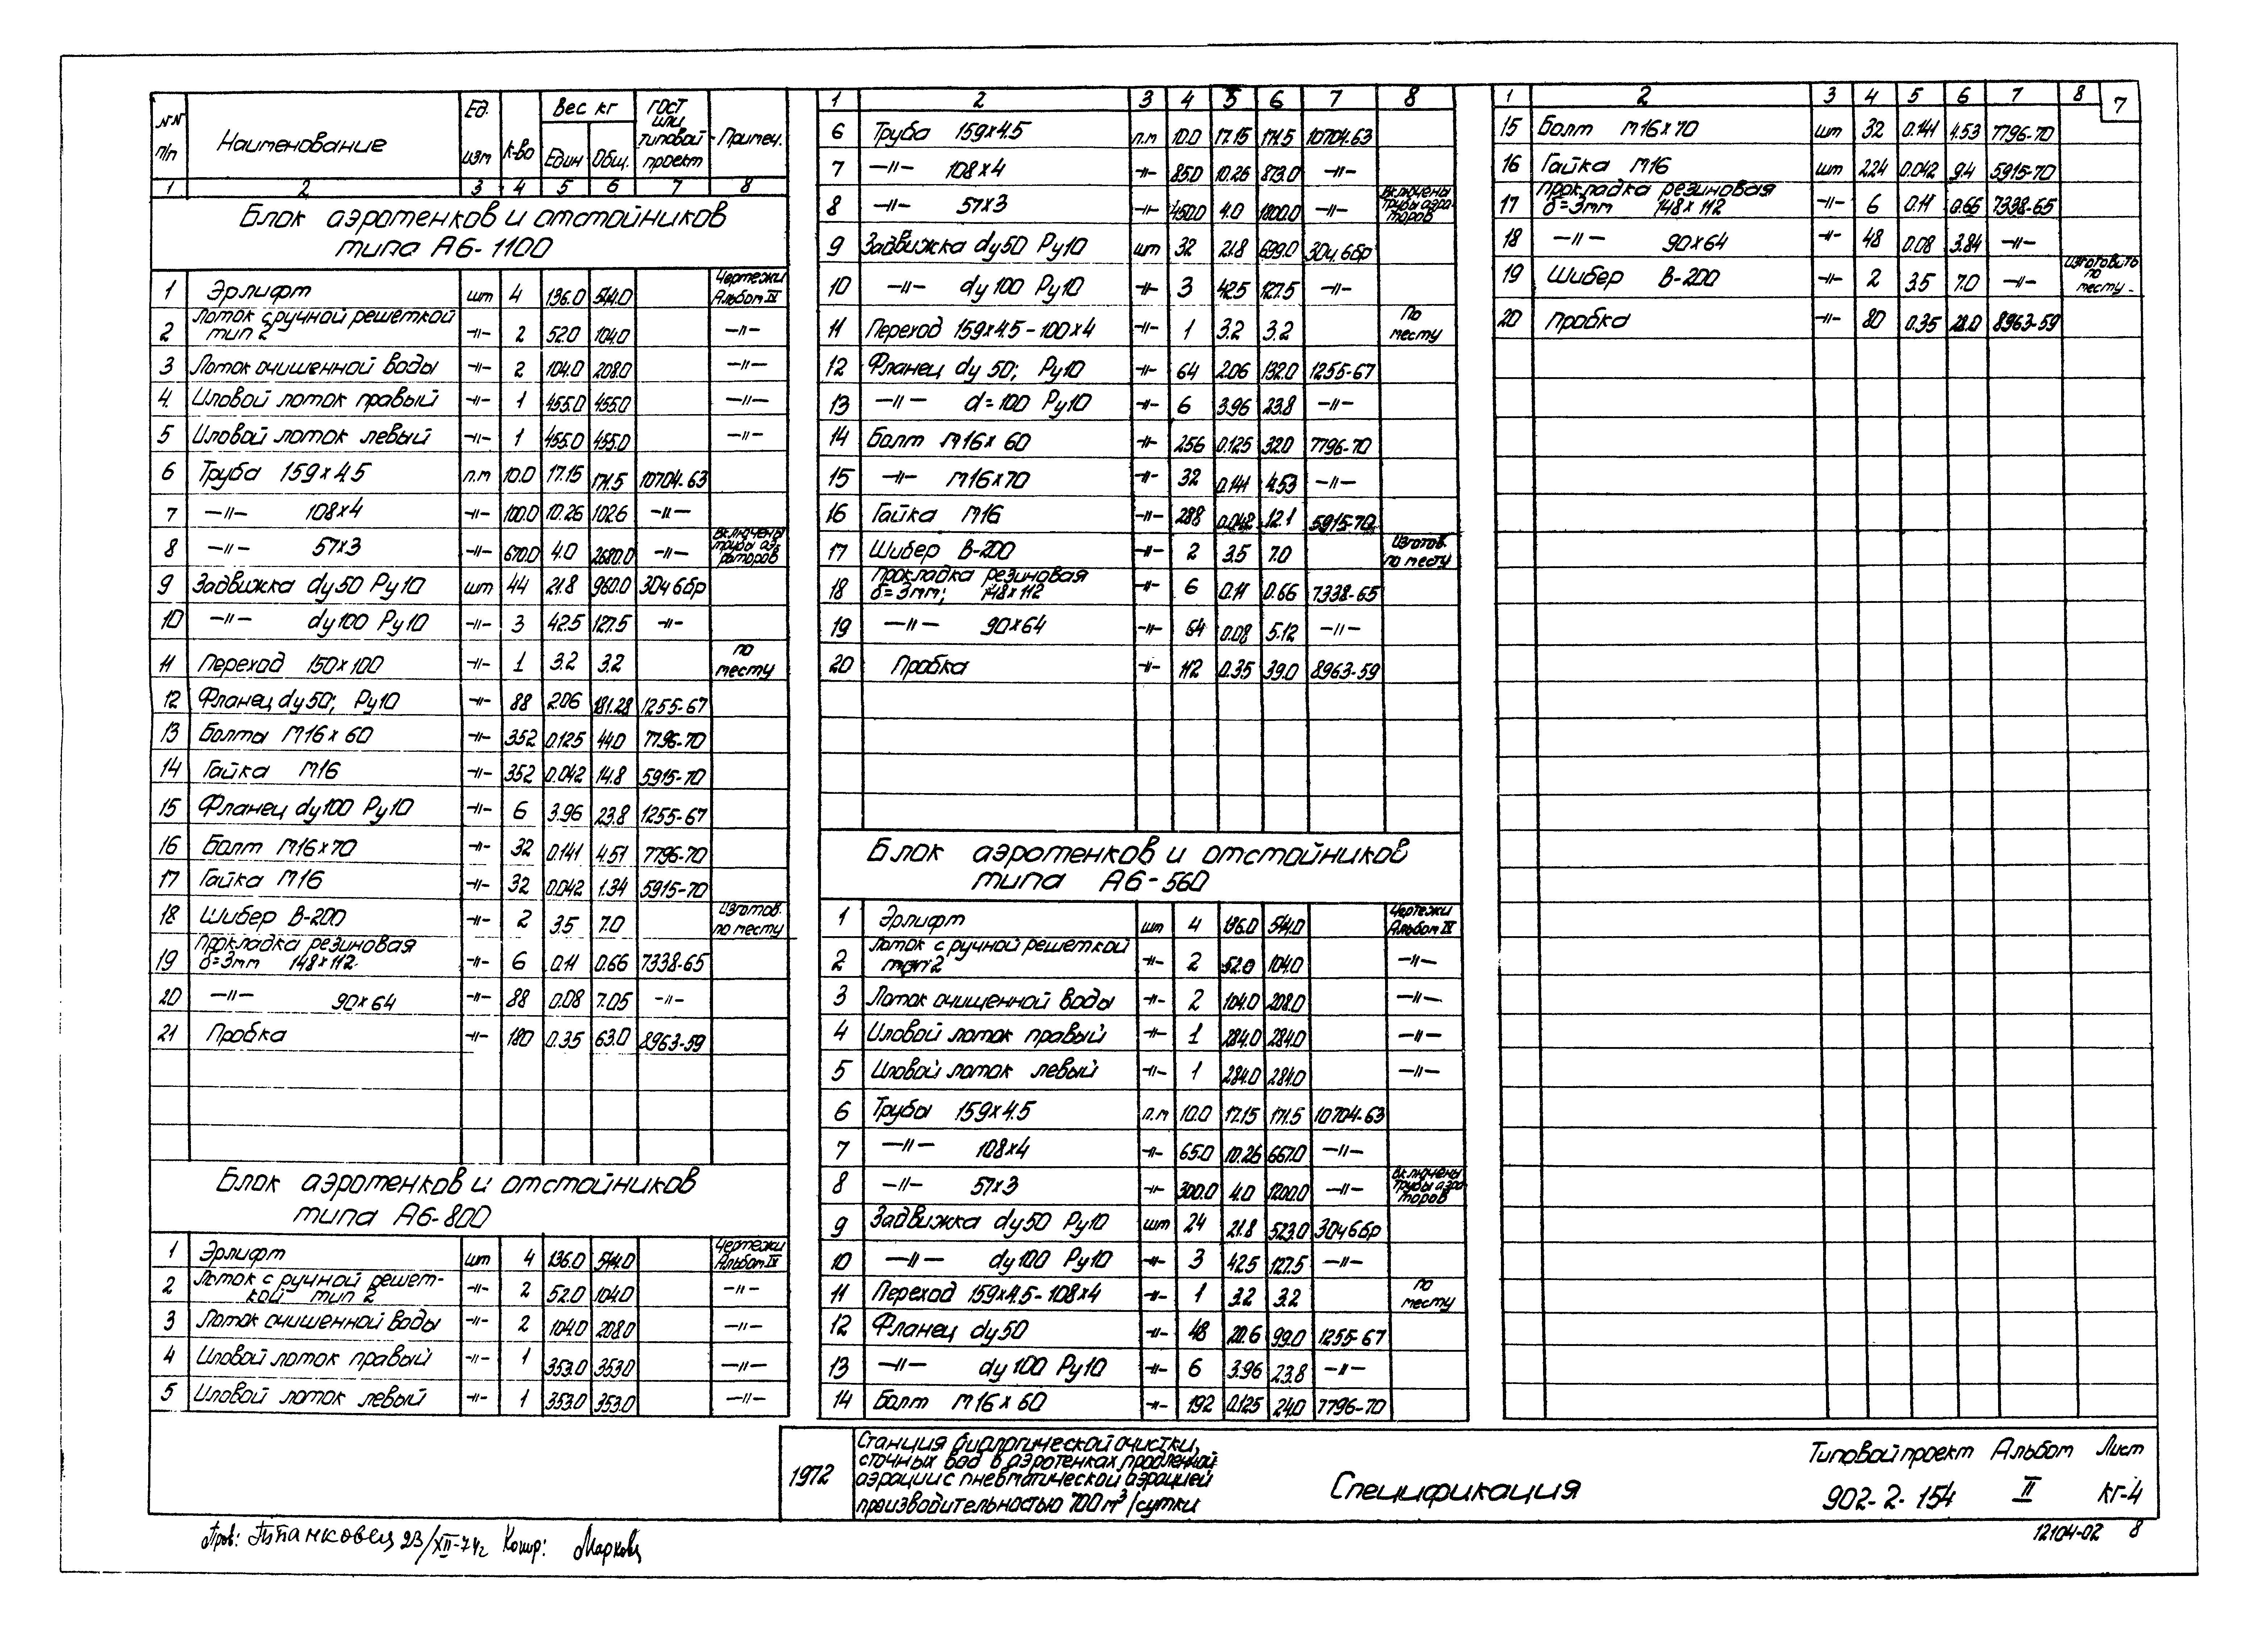 NN п/п Наименование Ед. изм К-во Вес кг Един Общ. ГОСТ или типовой проект Примеч.
1 2 3 4 5 6 7 8
Блок аэротенков и отстойников
типа А6-1100
1 Эрлифт шт 4 136.0 544.0 Чертежи Альбом IV
2 Лоток с ручной решеткой тип 2 -"- 2 52.0 104.0 -"-
3 Лоток очишенной воды -"- 2 104.0 208.0 -"-
4. Иловой лоток правый -"- 1 455.0 455.0 -"-
5 Иловой лоток левый -"- 1 455.0 455.0 -"-
6 Труба 159х4.5 п.м 10.0 17.15 171.5 10704-63
7 -"- 108х4 -"- 100.0 10.26 1026 -"-
8 -"- 57х3 -"- 670.0 4.0 2680.0 -"- включены трубы аэ- раторов
9 Задвижка dу50 Ру10 шт 44 21.8 960.0 30ч6бр
10 -"- dу100 Ру10 -"- 3 42.5 127.5 -"-
11 Переход 150х100 -"- 1 3.2 3.2 по месту
12 Фланец dу50; Ру10 -"- 88 2.06 181.28 1255-67
13 Болты М16х60 -"- 352 0.125 44.0 7796-70
14 Гайка М16 -"- 352 0.042 14.8 5915-70
15 Фланец dу100 Ру10 -"- 6 3.96 23.8 1255-67
16 Болт М16х70 -"- 32 0.141 4.51 7796-70
17 Гайка М16 -"- 32 0.042 1.34 5915-70
18 Шибер В-200 -"- 2 3.5 7.0 Изготов. по месту
19 Прокладка резиновая δ=3мм 148х112 -"- 6 0.11 0.66 7338-65
20 -"- 90х64 -"- 88 0.08 7.05 -"-
21 Пробка -"- 180 0.35 63.0 8963-59
Блок аэротенков и отстойников
типа А6-800
1 Эрлифт шт 4 136.0 544.0 Чертежи Альбом IV
2 Лоток с ручной решет- кой тип 2 -"- 2 52.0 104.0 -"-
3 Лоток очишенной воды -"- 2 104.0 208.0 -"-
4 Иловой лоток правый -"- 1 353.0 353.0 -"-
5 Иловой лоток левый -"- 1 353.0 353.0 -"-
1 2 3 4 5 6 7 8
6 Труба 159х4.5 п.м 10.0 17.15 171.5 10704-63
7 -"- 108х4 -"- 85.0 10.26 873.0 -"-
8 -"- 57х3 -"- 450.0 4.0 1800.0 -"- включены трубы аэра- торов
9 Задвижка dу50 Ру10 шт 32 21.8 699.0 30ч.6бр
10 -"- dу100 Ру10 -"- 3 42.5 127.5 -"-
11 Переход 159х4.5-100х4 -"- 1 3.2 3.2 По месту
12 Фланец dу 50; Ру10 -"- 64 2.06 132.0 1255-67
13 -"- d=100 Ру10 -"- 6 3.96 23.8 -"-
14 Болт М16х60 -"- 256 0.125 32.0 7796-70
15 -"- М16х70 -"- 32 0.141 4.53 -"-
16 Гайка М16 -"- 288 0.042 12.1 5915-70
17 Шибер В-200 -"- 2 3.5 7.0 Изготов. по месту
18 Прокладка резиновая δ=3мм; 148х112 -"- 6 0.11 0.66 7338-65
19 -"- 90х64 -"- 64 0.08 5.12 -"-
20 Пробка -"- 112 0.35 39.0 8963-59
Блок аэротенков и отстойников
типа А6-560
1 Эрлифт шт 4 136.0 544.0 Чертежи Альбом IV
2 Лоток с ручной решеткой тип 2 -"- 2 52.0 104.0 -"-
3 Лоток очищенной воды -"- 2 104.0 208.0 -"-
4 Иловой лоток правый -"- 1 284.0 284.0 -"-
5 Иловой лоток левый -"- 1 284.0 284.0 -"-
6 Трубы 159х4.5 п.м 10.0 17.15 171.5 10704-63
7 -"- 108х4 -"- 65.0 10.26 667.0 -"-
8 -"- 57х3 -"- 300.0 4.0 1200.0 -"- включены трубы аэра- торов
9 Задвижка dу50 Ру10 шт 24 21.8 523.0 30ч6бр
10 -"- dу100 Ру10 -"- 3 42.5 127.5 -"-
11 Переход 159х4.5-108х4 -"- 1 3.2 3.2 по месту
12 Фланец dу50 -"- 48 20.6 99.0 1255-67
13 -"- dу100 Ру10 -"- 6 3.96 23.8 -"-
14 Болт М16х60 -"- 192 0.125 24.0 7796-70
1 2 3 4 5 6 7 8
7
15 Болт М16х70 шт 32 0.141 4.53 7796-70
16 Гайка М16 шт 224 0.042 9.4 5915-70
17 Прокладка резиновая δ=3мм 148х112 -"- 6 0.11 0.66 7338-65
18 -"- 90х64 -"- 48 0.08 3.84 -"-
19 Шибер В-200 -"- 2 3.5 7.0 -"- Изготовить по месту
20 Пробка -"- 80 0.35 28.0 8963-59
1972
Станция биологической очистки,
сточных вод в аэротенках продленной
аэрации с пневматической аэрацией
производительностью 700 м³/сутки
Спецификация
Типовой проект Альбом Лист
902-2-154 II КГ-4
12104-02 8
Пров: 23/XII-74г Копир: